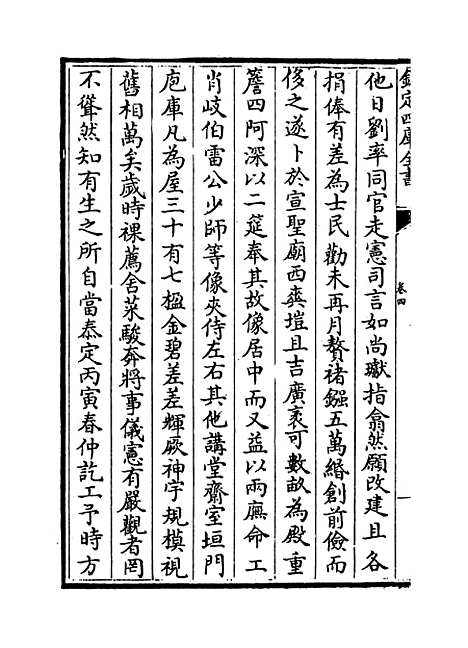 欽定四庫全書
卷四
他日劉率同官走憲司言如尚巘指翕然願改建且各
捐俸有差為士民勸未再月贅褚鏹五萬緡創前儉而
侈之遂卜於宣聖廟西爽塏且吉廣袤可數畝為殿重
簷四阿深以二筵奉其故像居中而又益以兩廡命工
肖岐伯雷公少師等像夾侍左右其他講堂齋室垣門
庖庫凡為屋三十有七楹金碧差差輝厥神宇規模視
舊相萬矣歲時祼薦舍菜駿奔將事儀憲有嚴觀者罔
不聳然知有生之所自當泰定丙寅春仲訖工予時方